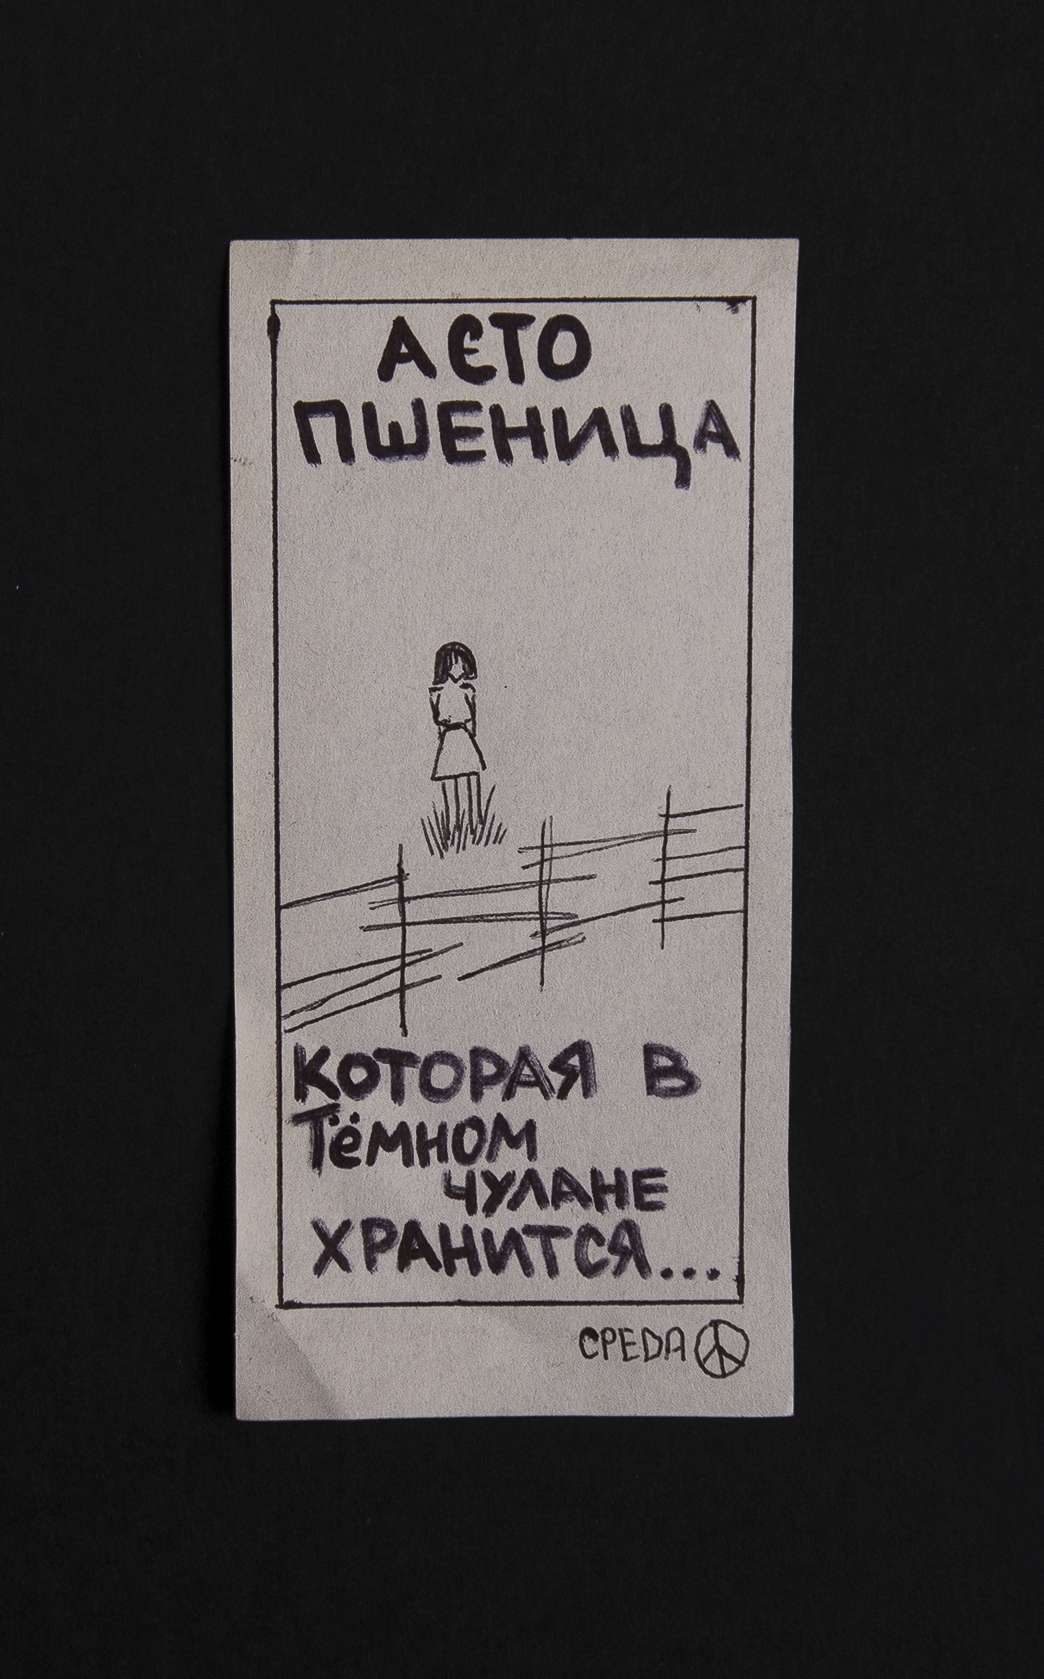 А ЄТО
ПШЕНИЦА
КОТОРАЯ В
ТёМНОМ
ЧУЛАНЕ
ХРАНИТСЯ...
СРЕDА